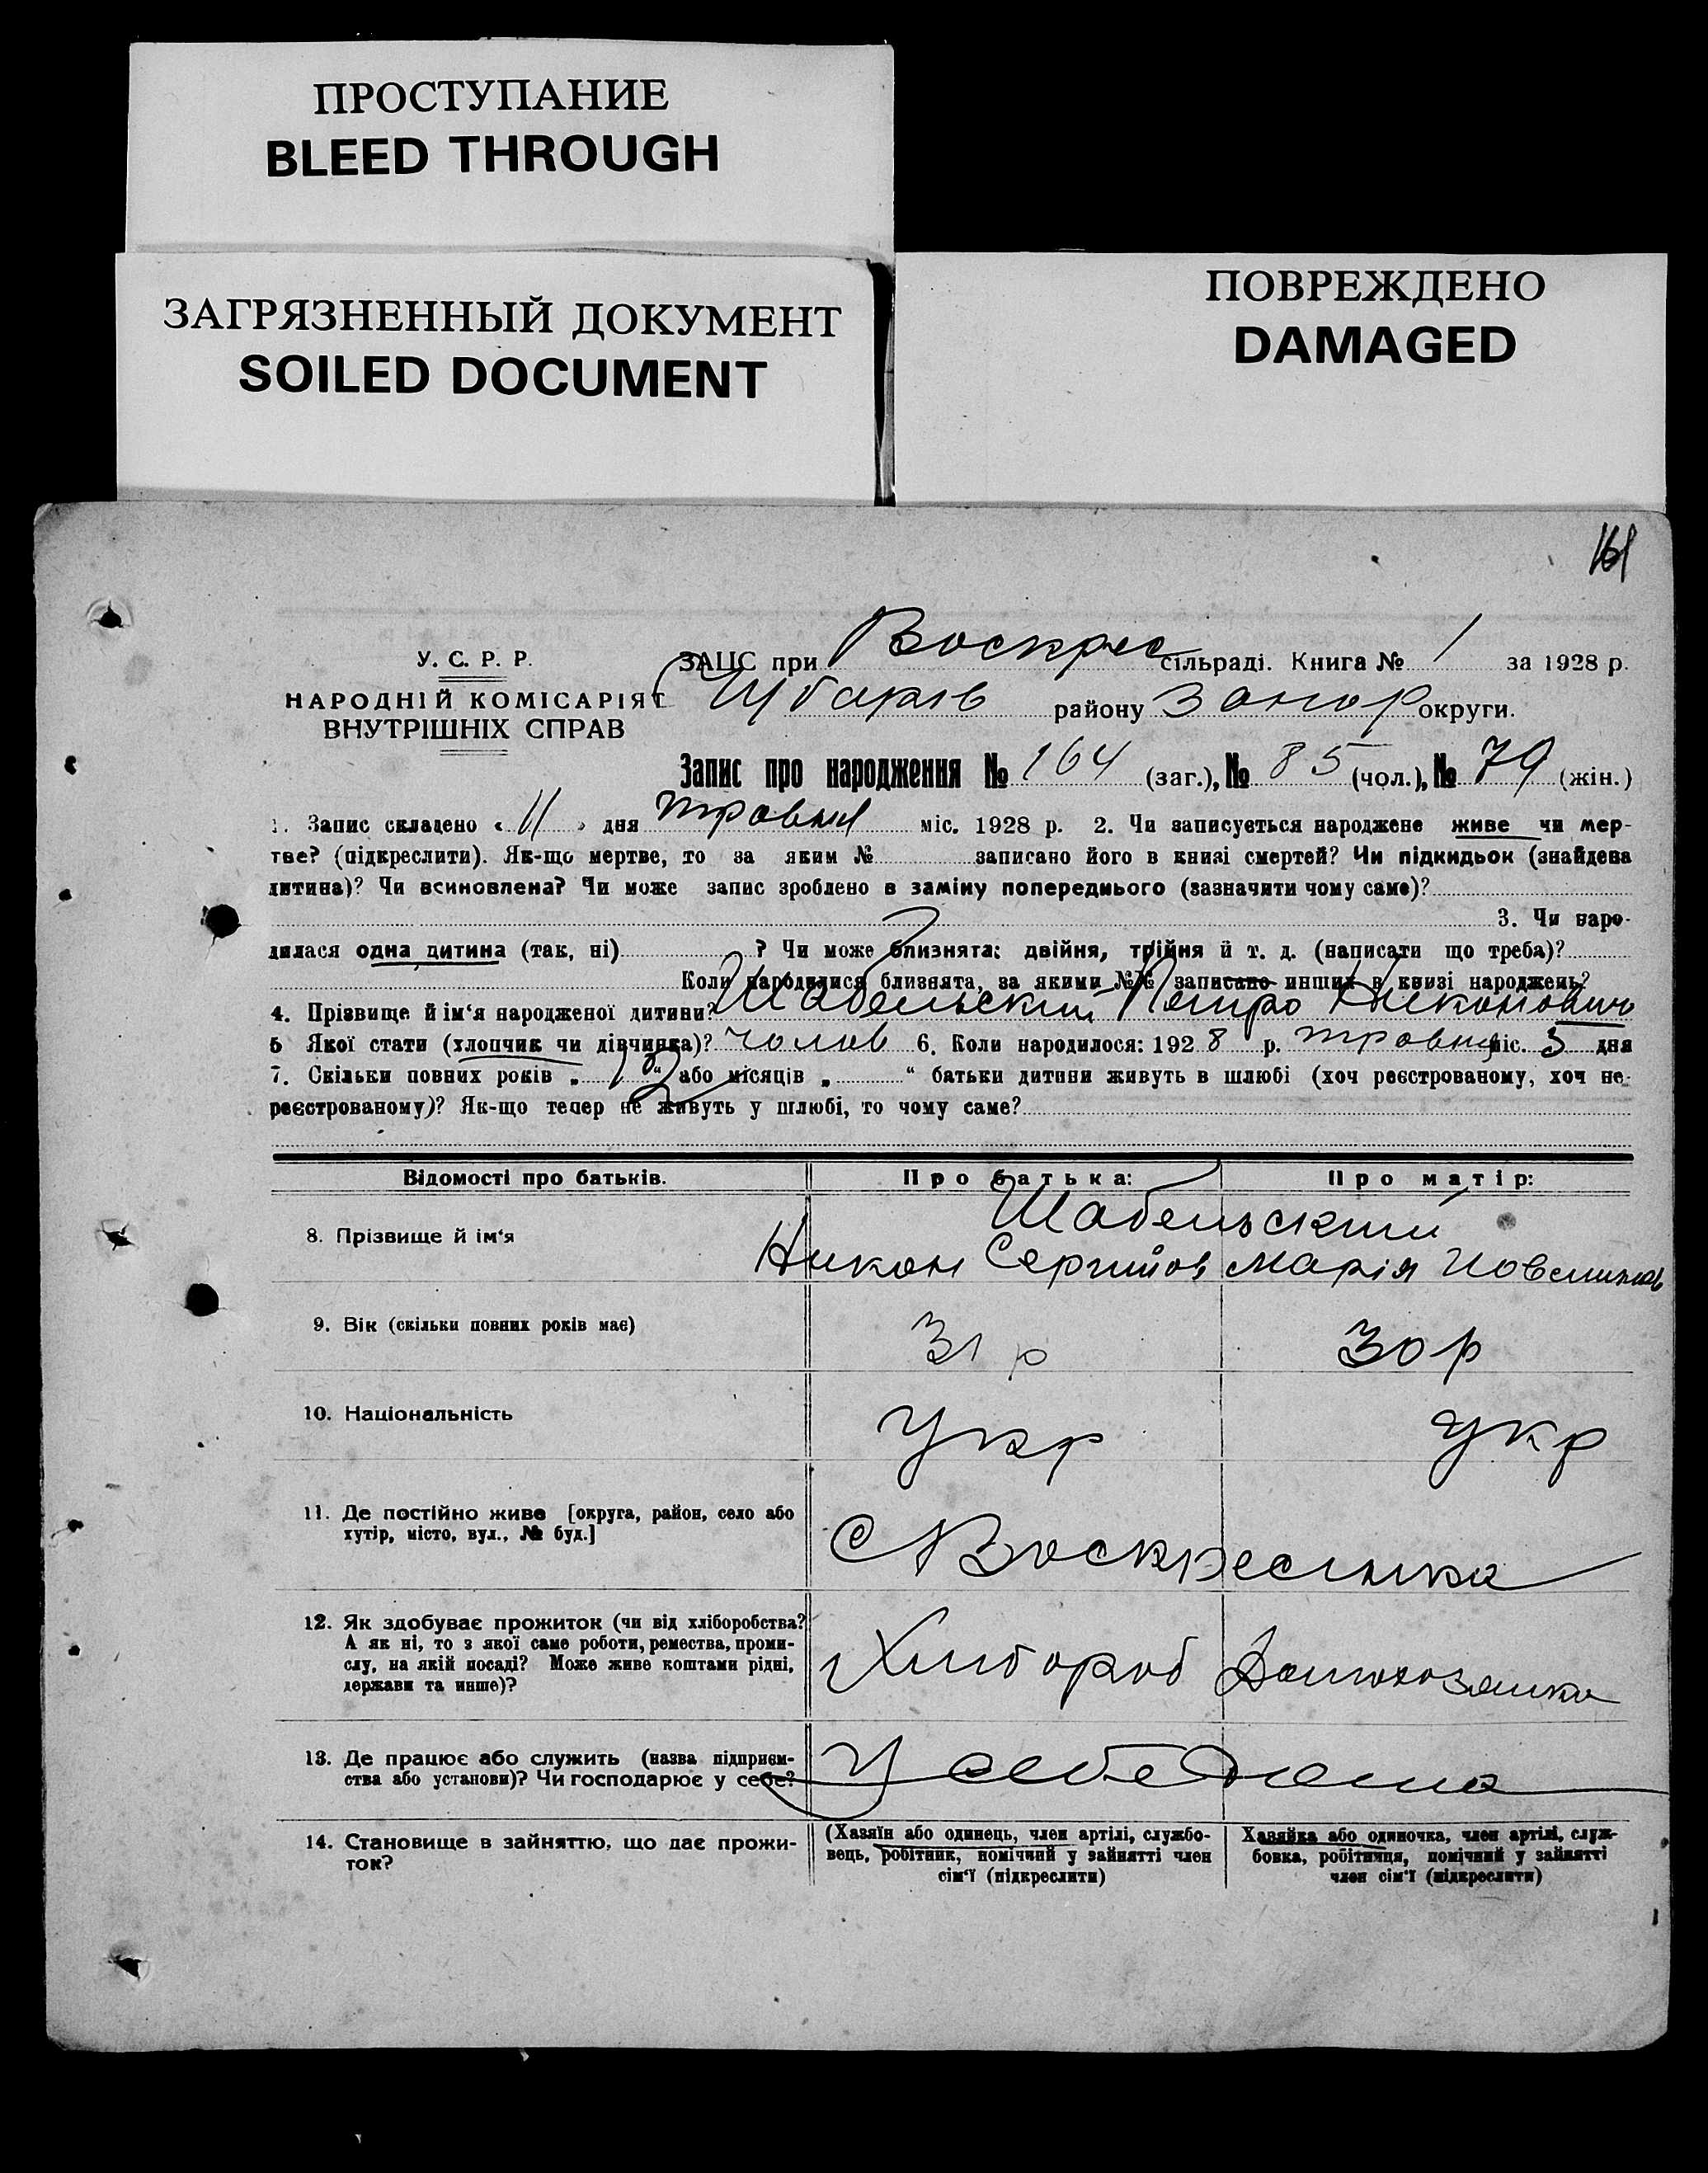 ПРОСТУПАНИЕ
BLEED THROUGH
ЗАГРЯЗНЕННЫЙ ДОКУМЕНТ
SOILED DOCUMENT
ПОВРЕЖДЕНО
DAMAGED
161
У. С. Р. Р.
НАРОДНІЙ КОМІСАРІЯТ
ВНУТРІШНІХ СПРАВ
ЗАГС при Воскрес сільраді. Книга № 1 за 1928 р.
району Запор округи.
Запис про народження № 164 (заг.), № 85 (чол.), № 79 (жін.)
1. Запис складено « 11 » дня травня міс. 1928 р. 2. Чи записується народжене живе чи мер-
тве? (підкреслити). Як-що мертве, то за яким № записано його в книзі смертей? Чи підкидьок (знайдена
дитина)? Чи всиновлена? Чи може запис зроблено в заміну попереднього (зазначити чому саме)?
3. Чи наро-
дилася одна дитина (так, ні) ? Чи може близнята: двійня, трійня й т. д. (написати що треба)?
Коли народилися близнята, за якими №№ записано инших в книзі народжень?
4. Прізвище й ім‘я народженої дитини? Шабельский Петро Никонович
5 Якої стати (хлопчик чи дівчинка)? чолов 6. Коли народилося: 1928 р. травня міс. 5 дня
7. Скільки повних років „ “ або місяців „ “ батьки дитини живуть в шлюбі (хоч реєстрованому, хоч не-
реєстрованому)? Як-що тепер не живуть у шлюбі, то чому саме?
Відомості про батьків. Про батька: Про матір:
8. Прізвище й ім‘я Шабельский
Никон Сергийов Марія
9. Вік (скільки повних років має) 31 р 30 р
10. Національність Укр Укр
11. Де постійно живе [округа, район, село або
хутір, місто, вул., № буд.]
С Воскресенка
12. Як здобуває прожиток (чи від хліборобства?
А як ні, то з якої саме роботи, ремества, проми-
слу, на якій посаді? Може живе коштами рідні,
держави та инше)?
Хлібороб Домохозяйка
13. Де працює або служить (назва підприєм-
ства або установи)? Чи господарює у себе?
У себе дома
14. Становище в зайняттю, що дає прожи-
ток?
(Хазяїн або одинець, член артілі, службо-
вець, робітник, помічний у зайнятті член
сім‘ї (підкреслити)
Хазяйка або одиночка, член артілі, служ-
бовка, робітниця, помічний у зайнятті
член сім‘ї (підкреслити)